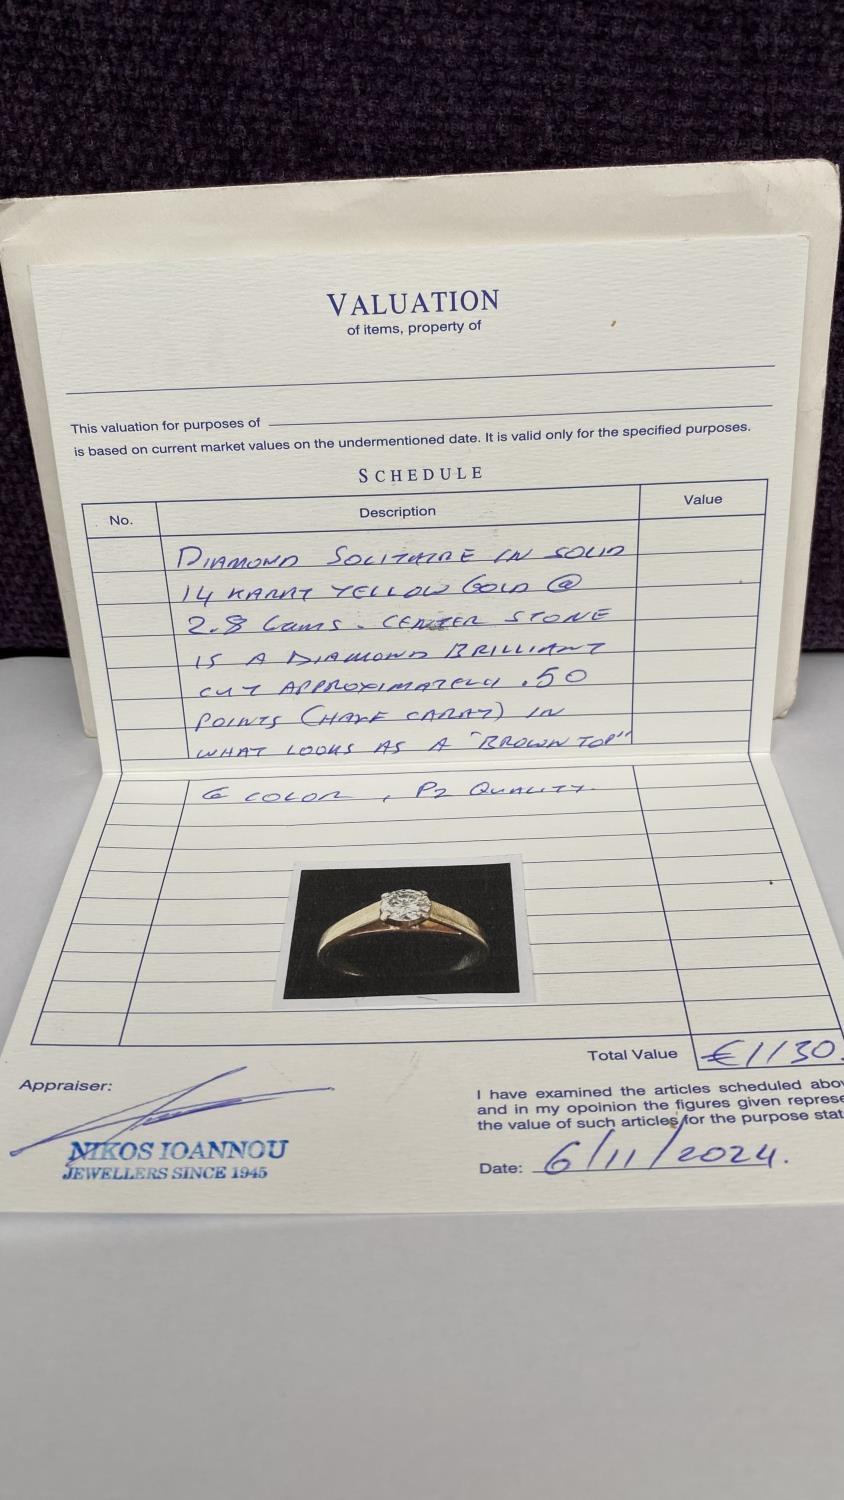 VALUATION
of items, property of
This valuation for purposes of
is based on current market values on the undermentioned date. It is valid only for the specified purposes.
SCHEDULE
No. Description Value
DIAMOND SOLITAIRE IN SOLID
14 KARAT YELLOW GOLD @
2.8 Gams. CENTER STONE
IS A DIAMOND BRILLIANT
CUT APPROXIMATELY .50
POINTS (HALF CARAT) IN
WHAT LOOKS AS A "BROWN TOP"
G COLOR, P2 QUALITY.
Total Value €1130.
Appraiser:
I have examined the articles scheduled abov
and in my opoinion the figures given represe
the value of such articles for the purpose stat
NIKOS IOANNOU
JEWELLERS SINCE 1945
Date: 6/11/2024.